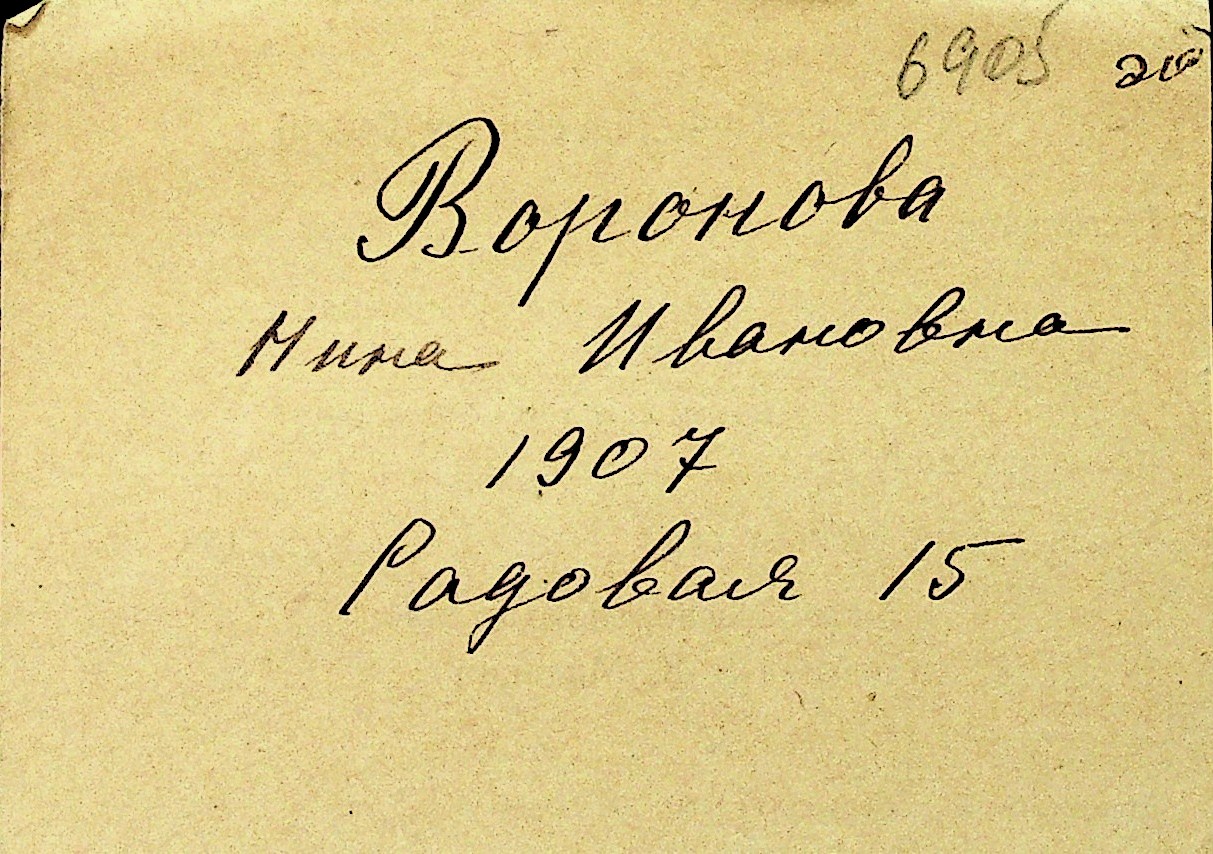 6905
Воронова
Нина Ивановна
1907
Садовая 15